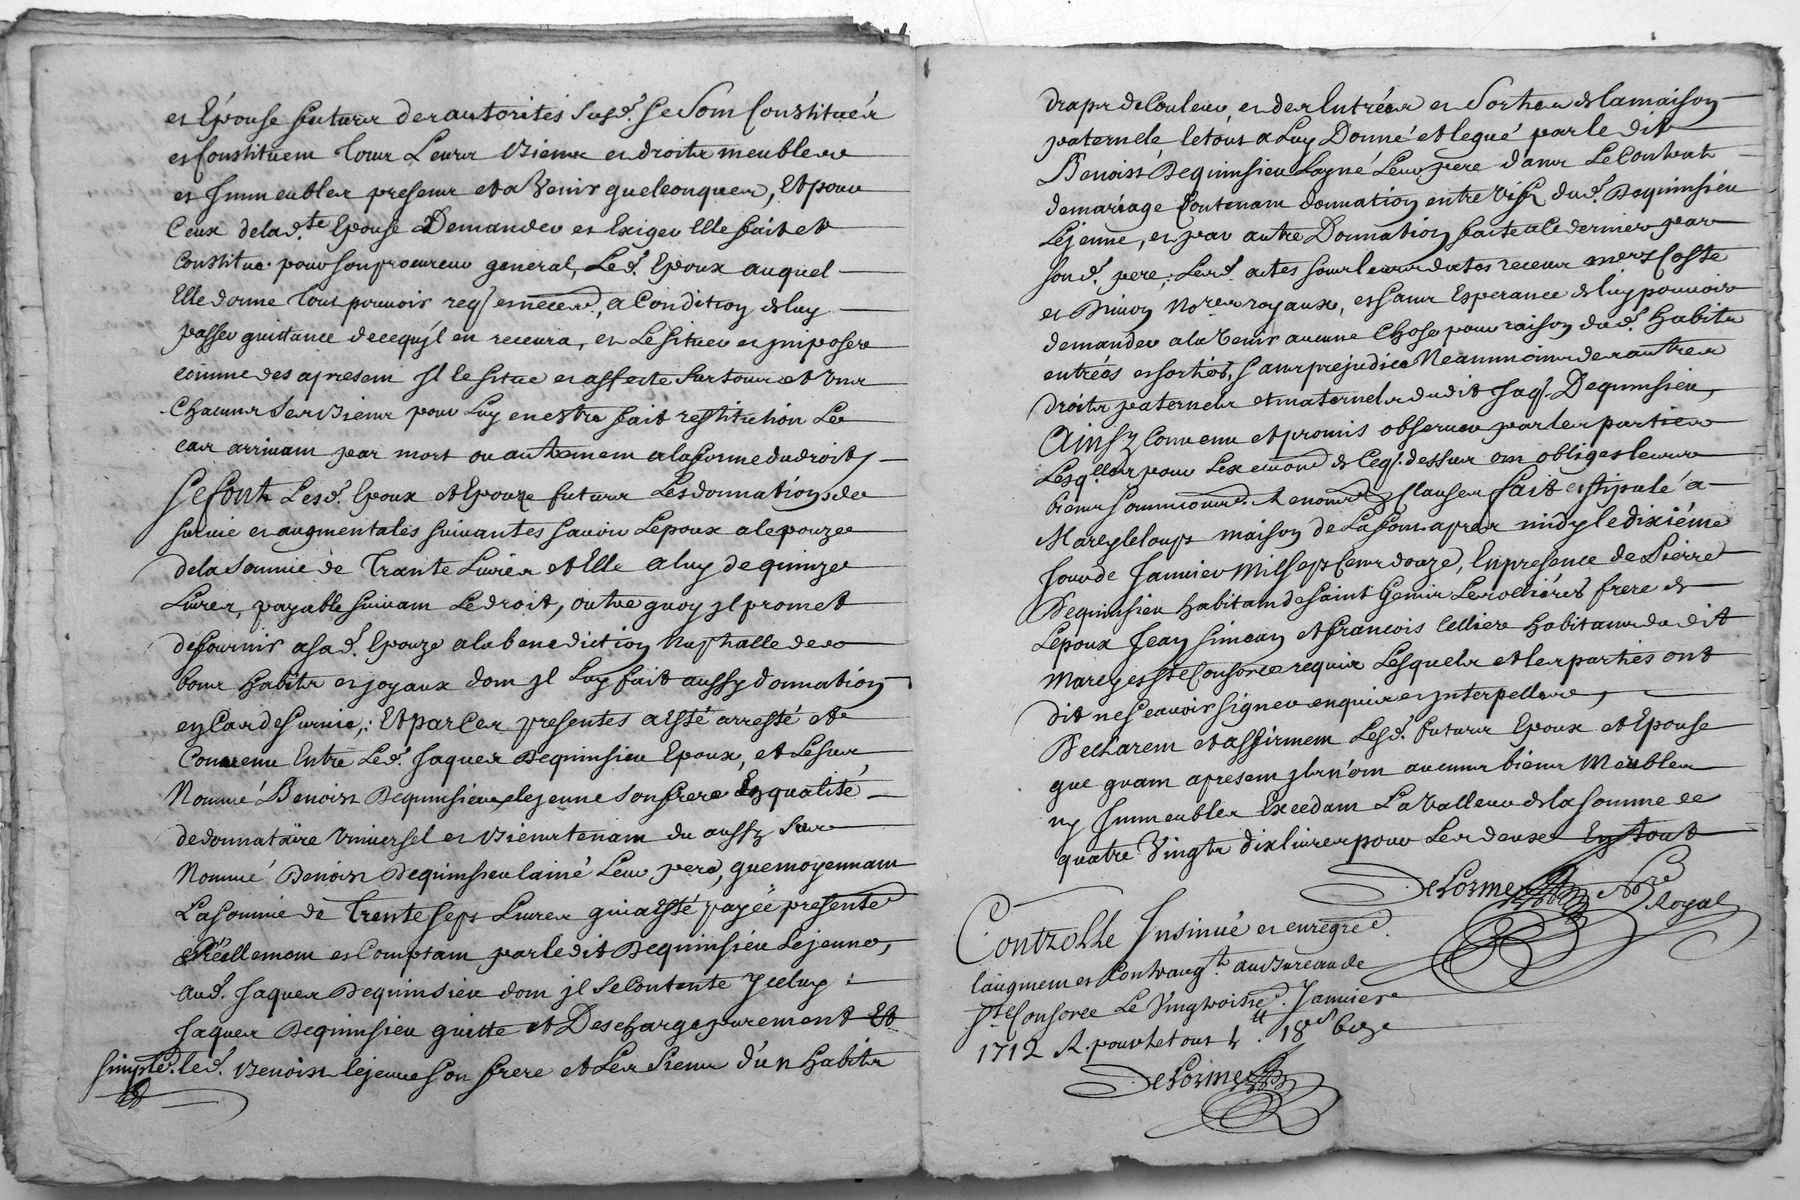 et Epouse futurs des autorités susd. se sont Constitués
et Constituent tous Leurs Biens et droits meubles
et Immeubles presents et a Venir quelconques, Et pour
Ceux de lad.te Epouse Demander et Exiger Elle fait et
Constitue pour son procureur general, Led. Epoux auquel
Elle donne tout pouvoir req. et necess.d, a Condition de luy
passer quittance de ce qu'jl en receura, et Le situer et jmposer
comme des apresent Jl le situe et affecte sur tous et Uns
Chacuns ses Biens pour Luy en estre fait restitution Le
cas arrivant par mort ou autrement a la forme du droit,
Se font Lesd. Epoux et Epouze futurs Les donnations de
survie et augmentales suivantes savoir Lepoux a lepouze
de la Somme de Trante Livres et Elle a luy de quinze
Livres, payable suivant Le droit, outre quoy jl promet
de fournir a sad. Epouze a la benediction Nuphalle des
bons habits et joyaux dont jl Luy fait aussy donnation
en Cas de survie,: Et par Ces presentes a esté arresté et
Convenu Entre Led. Jaques Dequinsieu Epoux, et Le sieur
Nommé Benoist Dequinsieu lejeune son frere En qualité
de donnataire Universel et Bienstenant du aussy sieur
Nommé Benoist Dequinsieu lainé Leur pere, que moyennant
La somme de Trente sept Livres qui a esté payée presente
Réellement et Comptant par ledit Dequinsieu Lejeune,
aud. Jaques Dequinsieu dont jl se Contente Jceluy
Jaques Dequinsieu quitte et Descharge purement Et
simple.d led. Benoist lejeune son frere et Les siens d'un habits
draps de Couleur, et des Entrées et Sorties de la maison
paternelle le tout a Luy Donné et legué par le dit
Benoist Dequinsieu Layné Leur pere dans Le Contrat
de mariage Contenant donnation entre Vifs dud. Dequinsieu
Lejeune, et par autre Donnation faite a le dernier par
son d. pere; Lesd. actes sous leurs dates receus mers Coste
et No.res royaux, et sans Esperance de luy pouvoir
demander a la Venir aucune Chose pour raison dud. habits
entrées et sorties, sans prejudice Neanmoins des autres
droits paternels et maternels dudit Jaq. Dequinsieu,
Ainsy Convenu et promis observer par les parties
Lesq.lles pour Lexecution de Ceq. dessus ont obligés leurs
biens soumissions. Renon.d Clauses fait et stipulé a
Marcy le loup maison de La Cour apres midy le dixiéme
Jour de Janvier Mil sept Cent douze, En presence de Pierre
Dequinsieu habitant de saint Genis Les ollieres frere de
Lepoux Jean simean et francois Cellier habitants du dit
Marcy et Ste Consorce requis Lesquels et les parties ont
dit ne sçavoir signer enquis et jnterpellés,
Declarent et affirment Lesd. futurs Epoux et Epouse
que quant apresent jls n'ont aucuns biens Meubles
ny Immeubles Excedant La Valleur de la somme de
quatre Vingts dix livres pour Les deux En tout
Delorme No.re
Royal
Controlle Insinué et enregré d.
laugment et Contraug.t au bureau de
Ste Consorce Le Vingtroisie d. Janvier
1712 R. pour le tout 4 tt. 18 s
Delorme